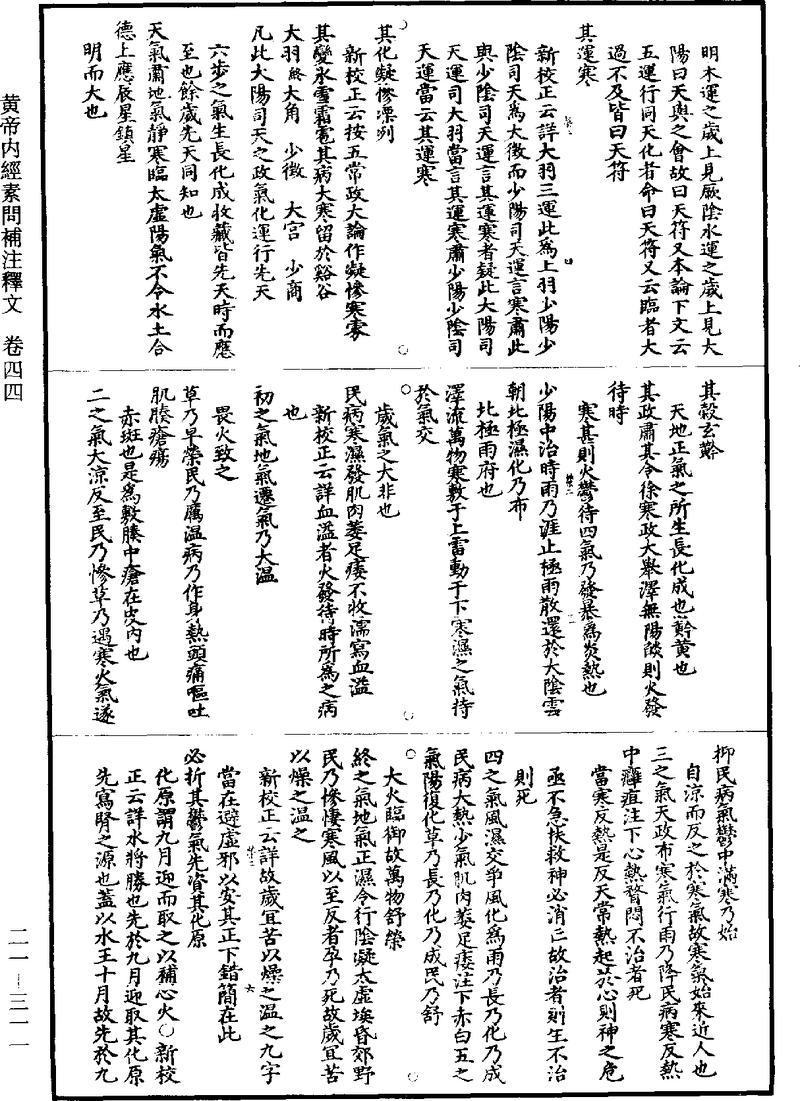 黄帝內經素問補注釋文　卷四四
明木運之歲上見厥陰水運之歲上見大
陽曰天與之會故曰天符又本論下文云
五運行同天化者命曰天符又云臨者大
過不及皆曰天符
其運寒
新校正云詳大羽三運此爲上羽少陽少
陰司天爲大徵而少陽司天運言寒肅此
與少陰司天運言其運寒者疑此大陽司
天運司大羽當言其運寒肅少陽少陰司
天運當云其運寒
其化凝慘凓冽
新校正云按五常政大論作凝慘寒雰
其變冰雪霜雹其病大寒留於谿谷
大羽終大角　少徵　大宮　少商
凡此大陽司天之政氣化運行先天
六步之氣生長化成收藏皆先天時而應
至也餘歲先天同知也
天氣肅地氣靜寒臨太虛陽氣不令水土合
德上應辰星鎮星
明而大也
其穀玄黅
天地正氣之所生長化成也黅黃也
其政肅其令徐寒政大舉澤無陽燄則火發
待時
寒甚則火鬱待四氣乃發暴爲炎熱也
少陽中治時雨乃涯止極雨散還於大陰雲
朝北極濕化乃布
北極雨府也
澤流萬物寒敷于上雷動于下寒濕之氣持
於氣交
歲氣之大非也
民病寒濕發肌肉萎足痿不收濡寫血溢
新校正云詳血溢者火發待時所爲之病
也
初之氣地氣遷氣乃大溫
畏火致之
草乃早榮民乃厲溫病乃作身熱頭痛嘔吐
肌腠瘡瘍
赤斑也是爲敷腠中瘡在皮內也
二之氣大涼反至民乃慘草乃遇寒火氣遂
抑民病氣鬱中滿寒乃始
自涼而反之於寒氣故寒氣始來近人也
三之氣天政布寒氣行雨乃降民病寒反熱
中癰疽注下心熱瞀悶不治者死
當寒反熱是反天常熱起於心則神之危
亟不急扶救神必消亡故治者則生不治
則死
四之氣風濕交爭風化爲雨乃長乃化乃成
民病大熱少氣肌肉萎足痿注下赤白五之
氣陽復化草乃長乃化乃成民乃舒
大火臨御故萬物舒榮
終之氣地氣正濕令行陰凝太虛埃昏郊野
民乃慘悽寒風以至反者孕乃死故歲宜苦
以燥之溫之
新校正云詳故歲宜苦以燥之溫之九字
當在避虛邪以安其正下錯簡在此
必折其鬱氣先資其化原
化原謂九月迎而取之以補心火○新校
正云詳水將勝也先於九月迎取其化原
先寫腎之源也蓋以水王十月故先於九
二一—三一一